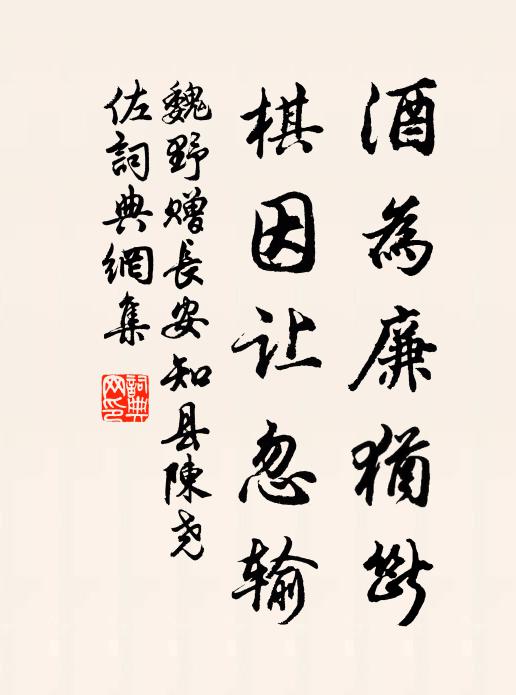 酒為廉猶斷
棋因让忽输
魏野赠長安知县陳尧
佐詞典網集
詞典网印